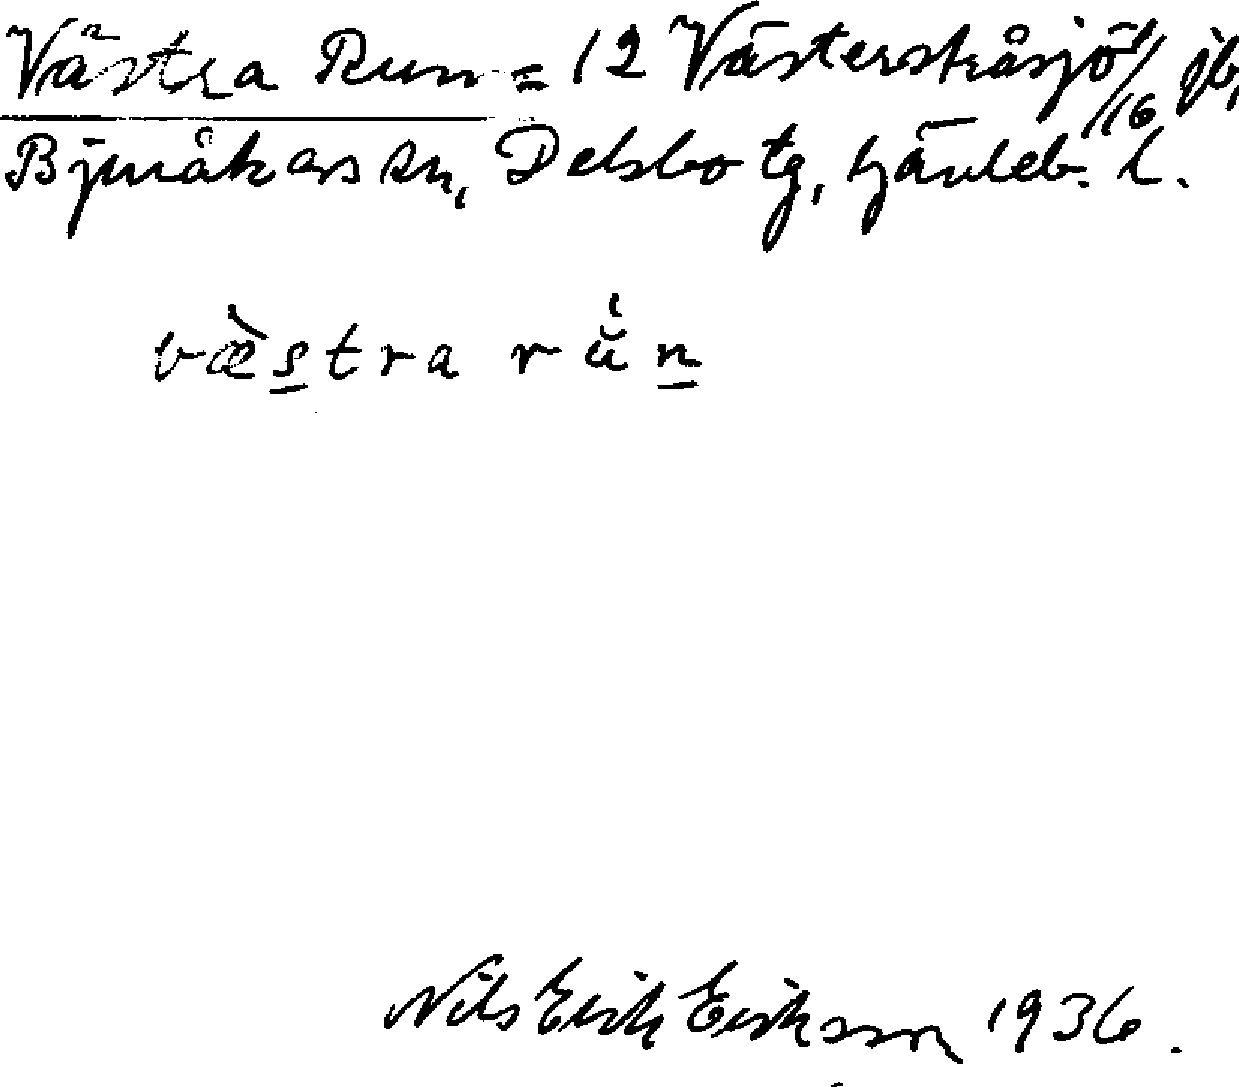 Västra Run = 12 Västerstråsjö 1/16 jb,
Bjuråkers sn, Delsbo tg, Gävleb. l.
væ̀stra rǔn
Nils Erik Eriksson 1936.